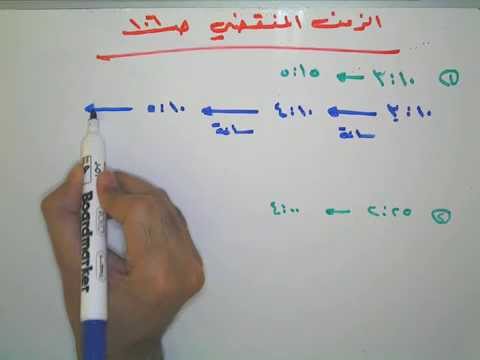 الزمن المنقضي ص ١٠٦
① ٣:١٠ ← ٥:١٥
٣:١٠ ← ٤:١٠ ← ٥:١٠ ←
ساعة ساعة
② ٢:٢٥ ← ٤:٠٠
Boardmarker